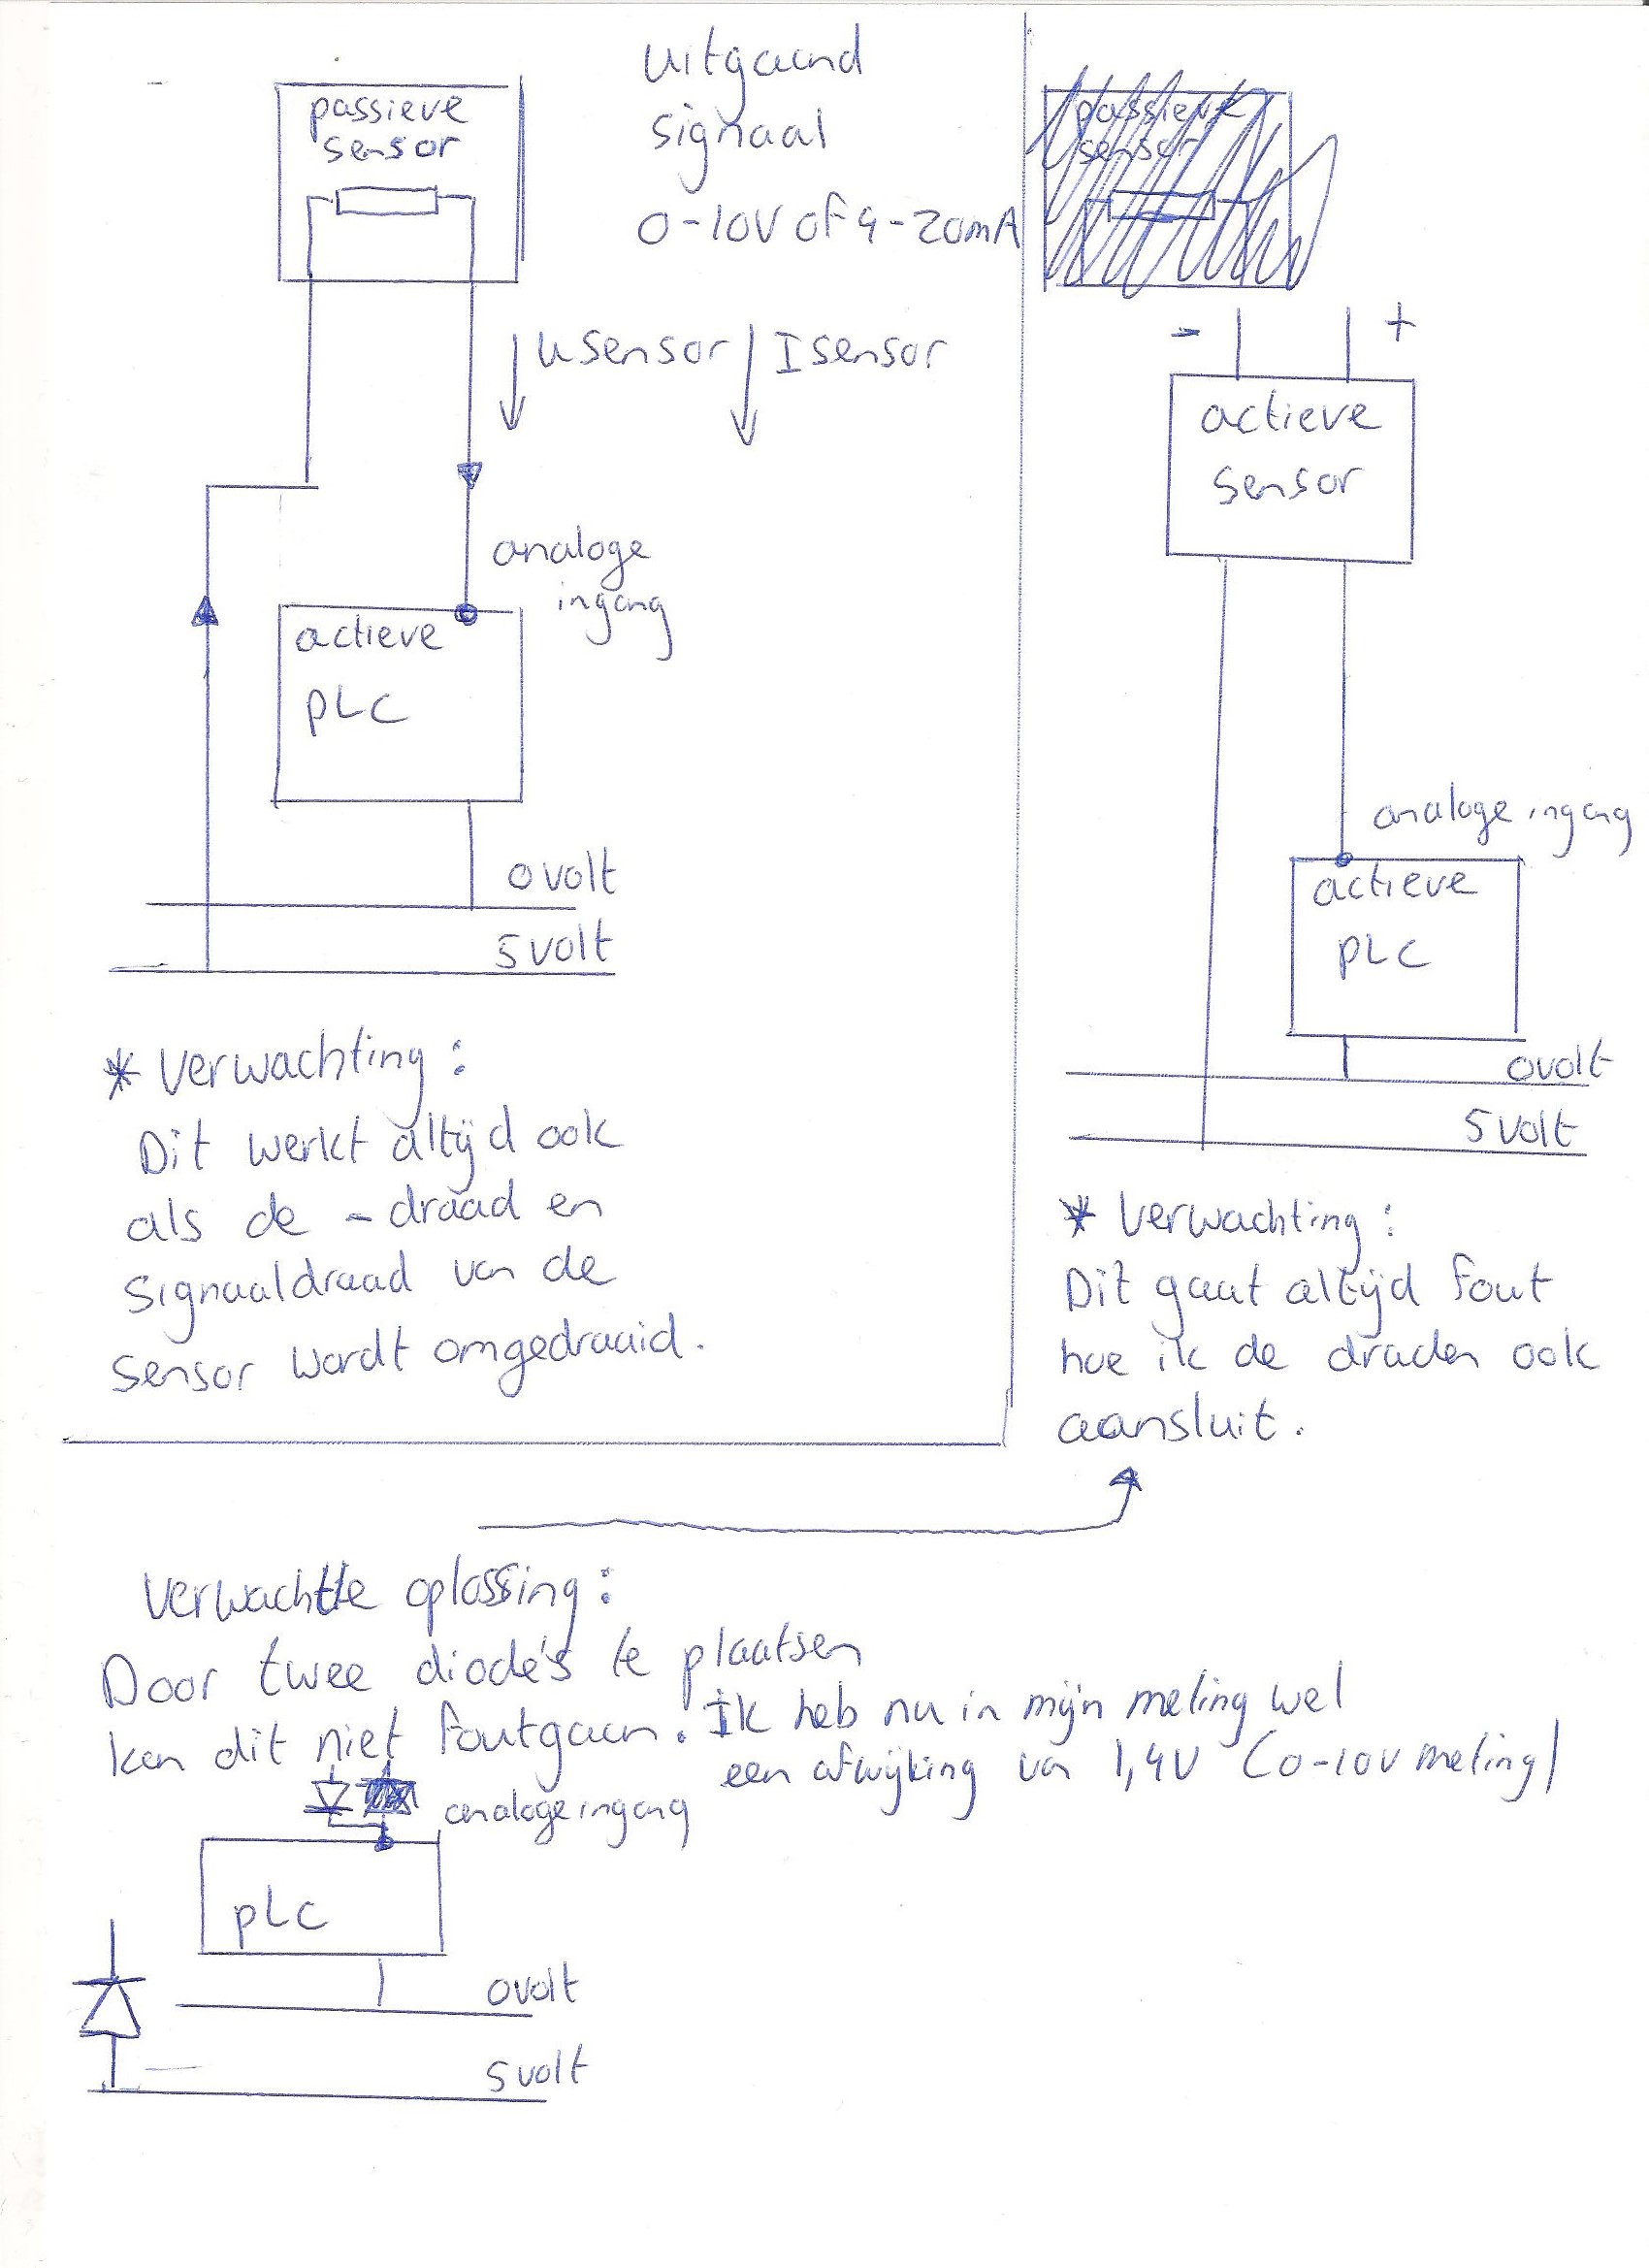 passieve
sensor
uitgaand
signaal
0-10V of 4-20mA
↓ Usensor ↓ Isensor
analoge
ingang
actieve
PLC
0volt
5volt
* Verwachting:
Dit werkt altijd ook
als de -draad en
Signaaldraad van de
Sensor wordt omgedraaid.
passieve
sensor
- +
actieve
sensor
analoge ingang
actieve
PLC
0volt
5volt
* Verwachting:
Dit gaat altijd fout
hoe ik de draden ook
aansluit.
Verwachtte oplossing:
Door twee diode's te plaatsen
kan dit niet foutgaan. Ik heb nu in mijn meting wel
een afwijking van 1,4V (0-10V meting)
analoge ingang
PLC
0volt
5volt